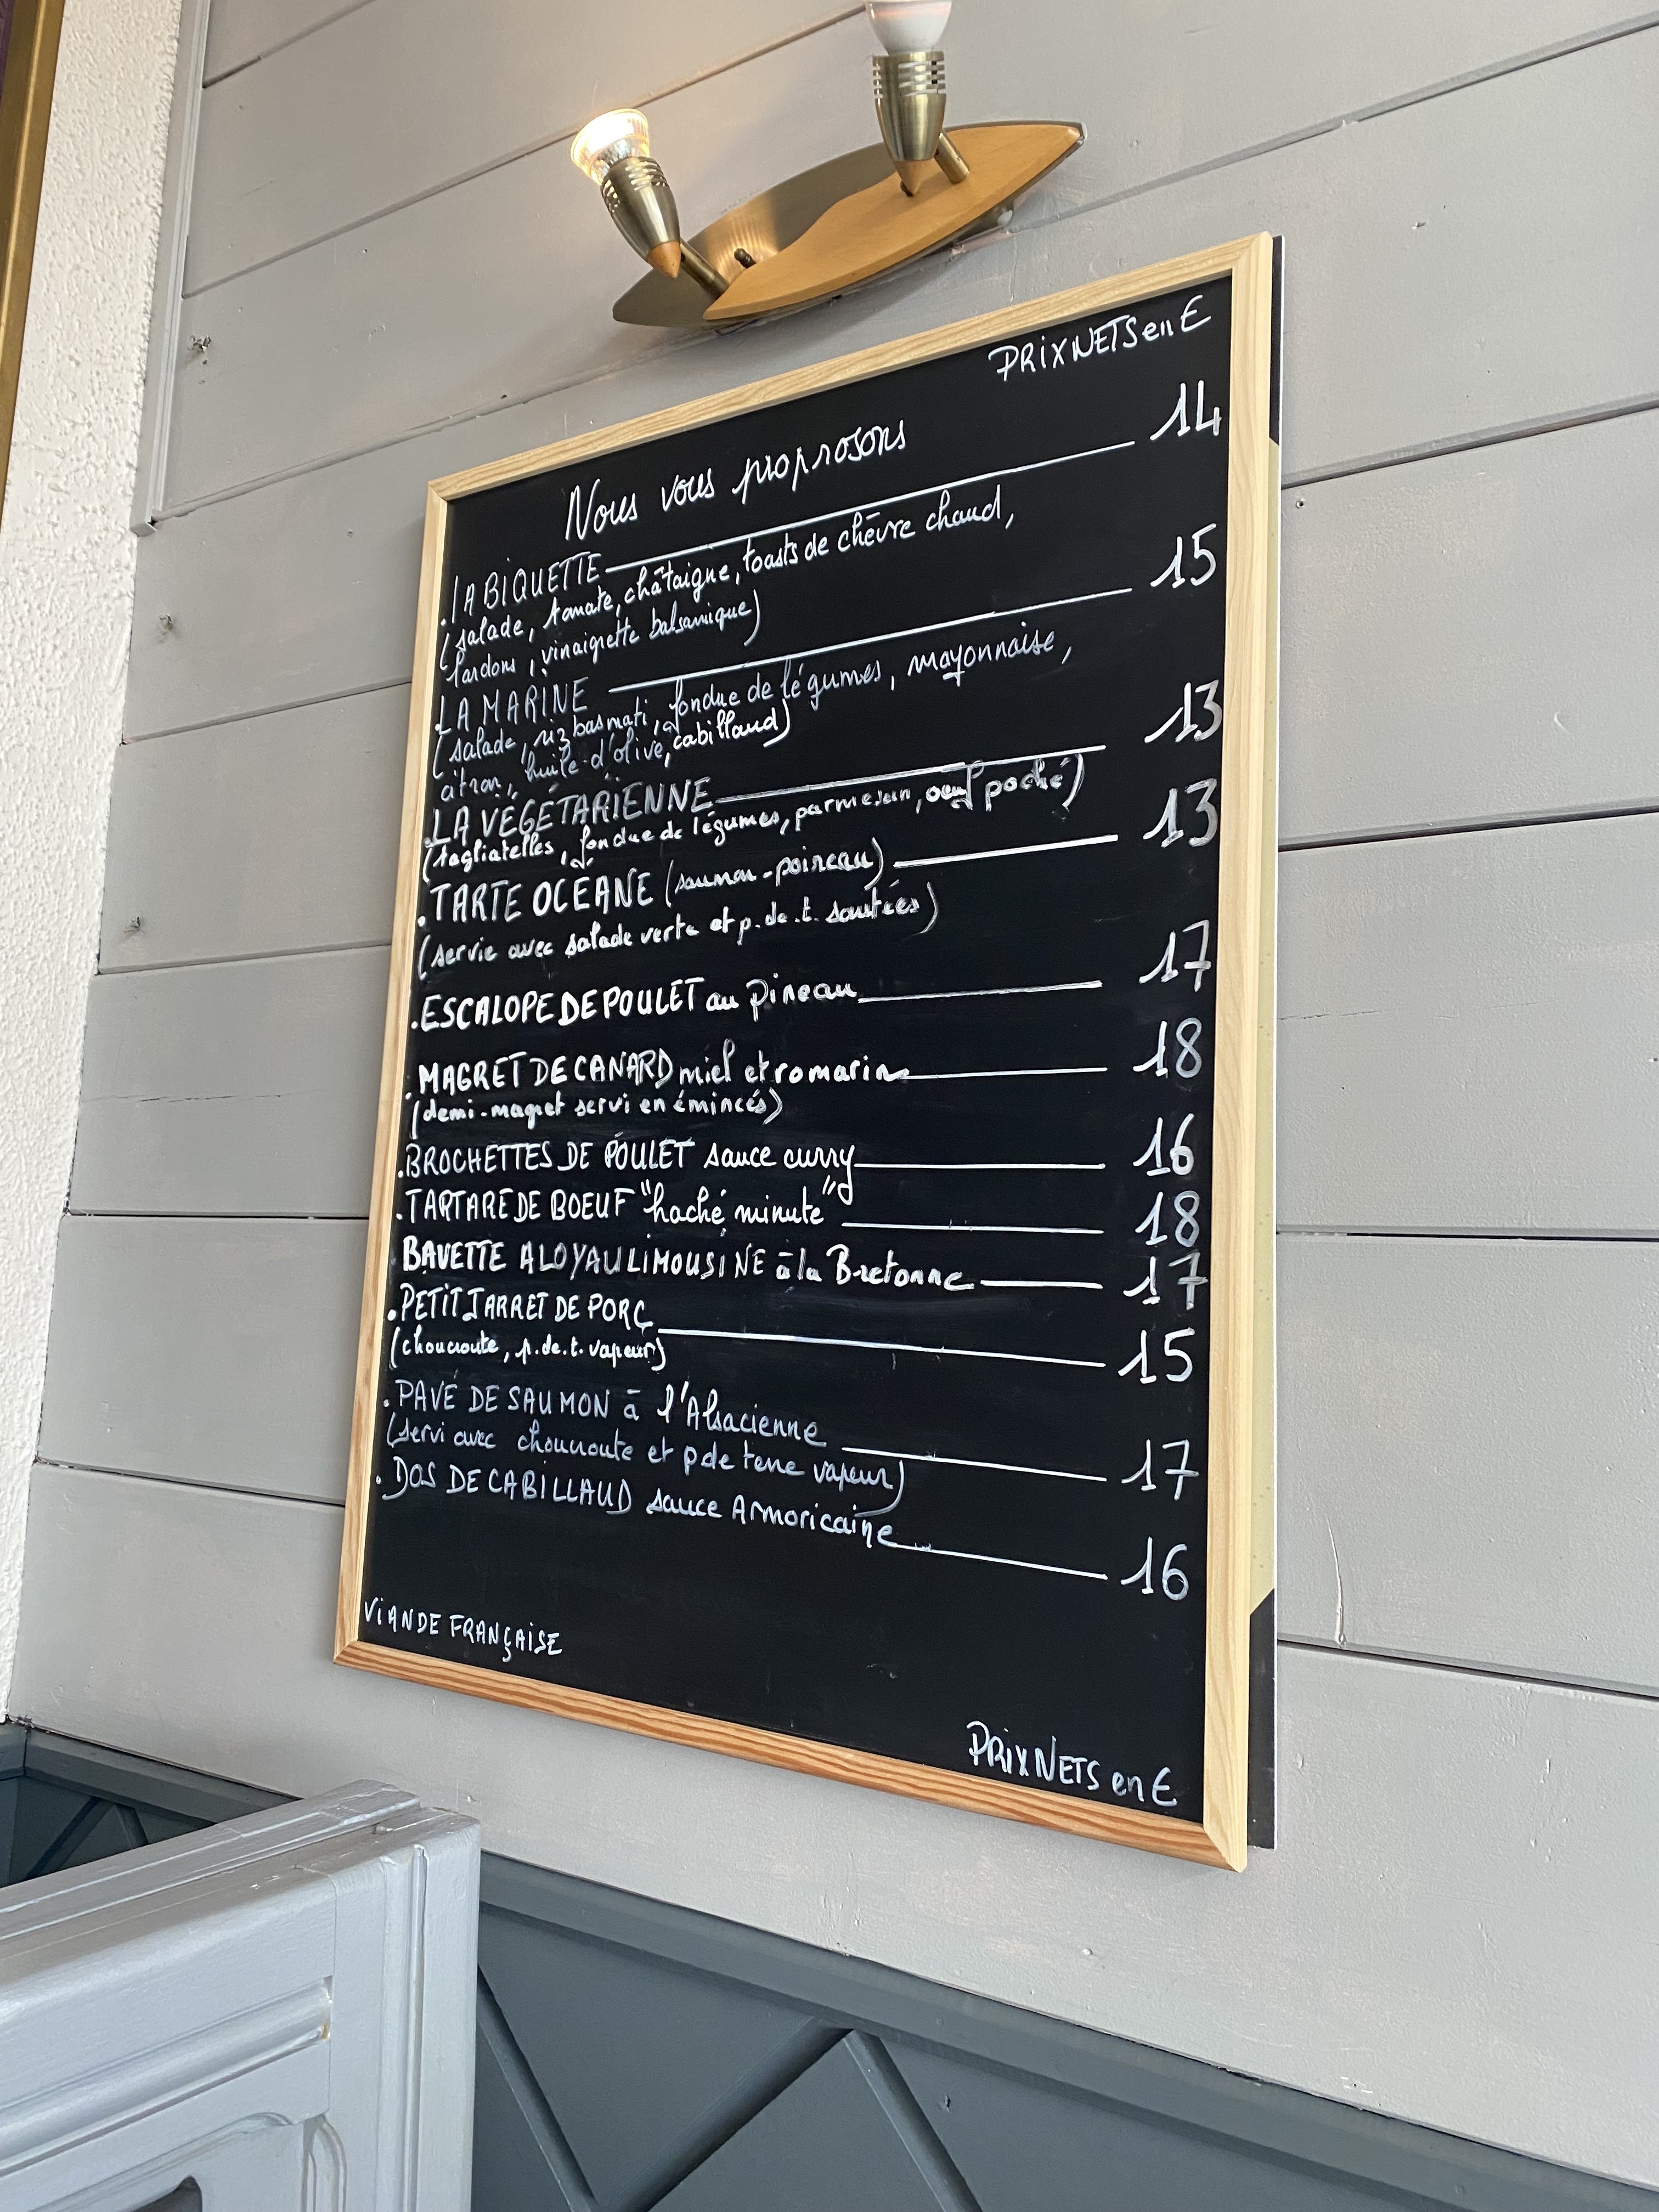 PRIX NETS en €
Nous vous proposons
. LA BIQUETTE 14
(salade, tomate, châtaigne, toasts de chèvre chaud,
lardons, vinaigrette balsamique)
. LA MARINE 15
(salade, riz basmati, fondue de légumes, mayonnaise,
citron, huile d'olive, cabillaud)
. LA VÉGÉTARIENNE 13
(tagliatelles, fondue de légumes, parmesan, oeuf poché)
. TARTE OCÉANE (saumon-poireau) 13
(servie avec salade verte et p.de.t. sautées)
. ESCALOPE DE POULET au pineau 17
. MAGRET DE CANARD miel et romarin 18
(demi-magret servi en émincés)
. BROCHETTES DE POULET sauce curry 16
. TARTARE DE BOEUF "haché minute" 18
. BAVETTE ALOYAU LIMOUSINE à la Bretonne 17
. PETIT JARRET DE PORC 15
(choucroute, p.de.t. vapeur)
. PAVÉ DE SAUMON à l'Alsacienne 17
(servi avec choucroute et p de terre vapeur)
. DOS DE CABILLAUD sauce Armoricaine 16
VIANDE FRANÇAISE
PRIX NETS en €